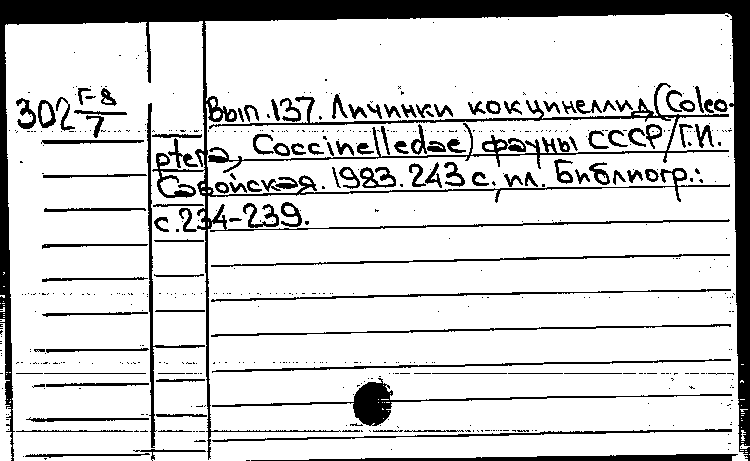 302 Г-8/7
Вып.137. Личинки кокцинеллид (Coleo-
ptera, Coccinelledae) фауны СССР/Г.И.
Савойская. 1983. 243 с., ил. Библиогр.:
с.234-239.